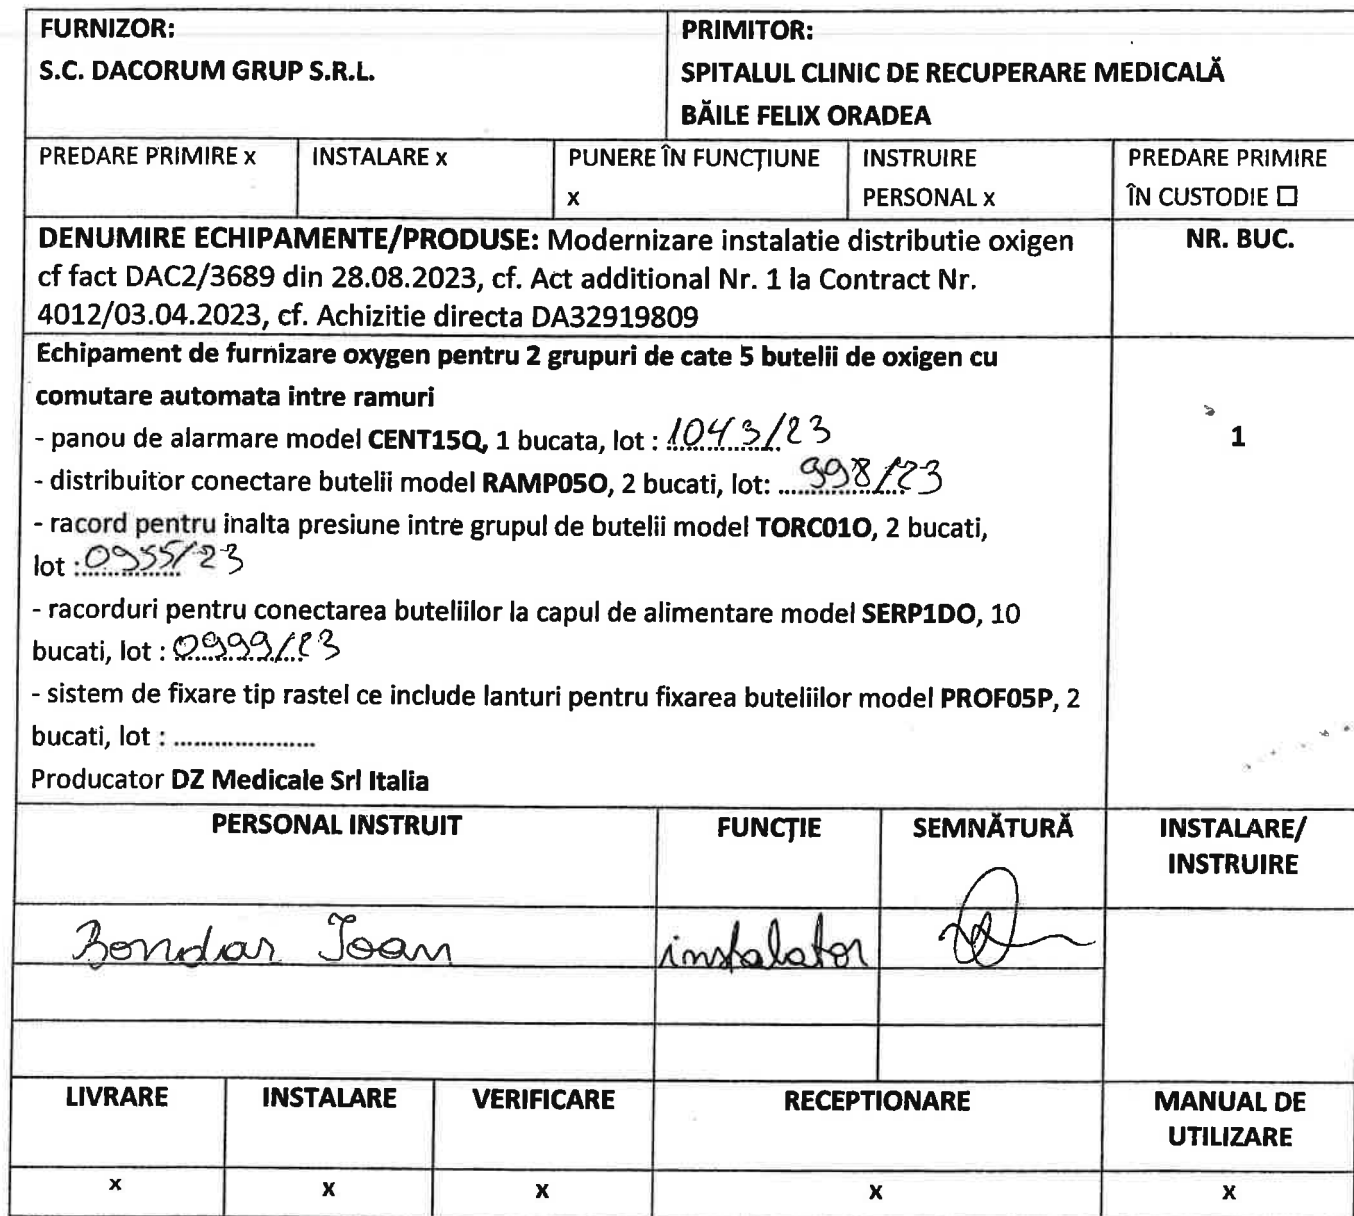 FURNIZOR:
S.C. DACORUM GRUP S.R.L.
PRIMITOR:
SPITALUL CLINIC DE RECUPERARE MEDICALĂ
BĂILE FELIX ORADEA
PREDARE PRIMIRE x
INSTALARE x
PUNERE ÎN FUNCȚIUNE
x
INSTRUIRE
PERSONAL x
PREDARE PRIMIRE
ÎN CUSTODIE ☐
DENUMIRE ECHIPAMENTE/PRODUSE: Modernizare instalatie distributie oxigen
cf fact DAC2/3689 din 28.08.2023, cf. Act additional Nr. 1 la Contract Nr.
4012/03.04.2023, cf. Achizitie directa DA32919809
NR. BUC.
Echipament de furnizare oxygen pentru 2 grupuri de cate 5 butelii de oxigen cu
comutare automata intre ramuri
- panou de alarmare model CENT15Q, 1 bucata, lot : 1043/23
- distribuitor conectare butelii model RAMP05O, 2 bucati, lot: 998/23
- racord pentru inalta presiune intre grupul de butelii model TORC01O, 2 bucati,
lot : 0955/23
- racorduri pentru conectarea buteliilor la capul de alimentare model SERP1DO, 10
bucati, lot : 0999/23
- sistem de fixare tip rastel ce include lanturi pentru fixarea buteliilor model PROF05P, 2
bucati, lot : ......................
Producator DZ Medicale Srl Italia
1
PERSONAL INSTRUIT
FUNCȚIE
SEMNĂTURĂ
INSTALARE/
INSTRUIRE
Bondar Ioan
instalator
LIVRARE
INSTALARE
VERIFICARE
RECEPTIONARE
MANUAL DE
UTILIZARE
x
x
x
x
x